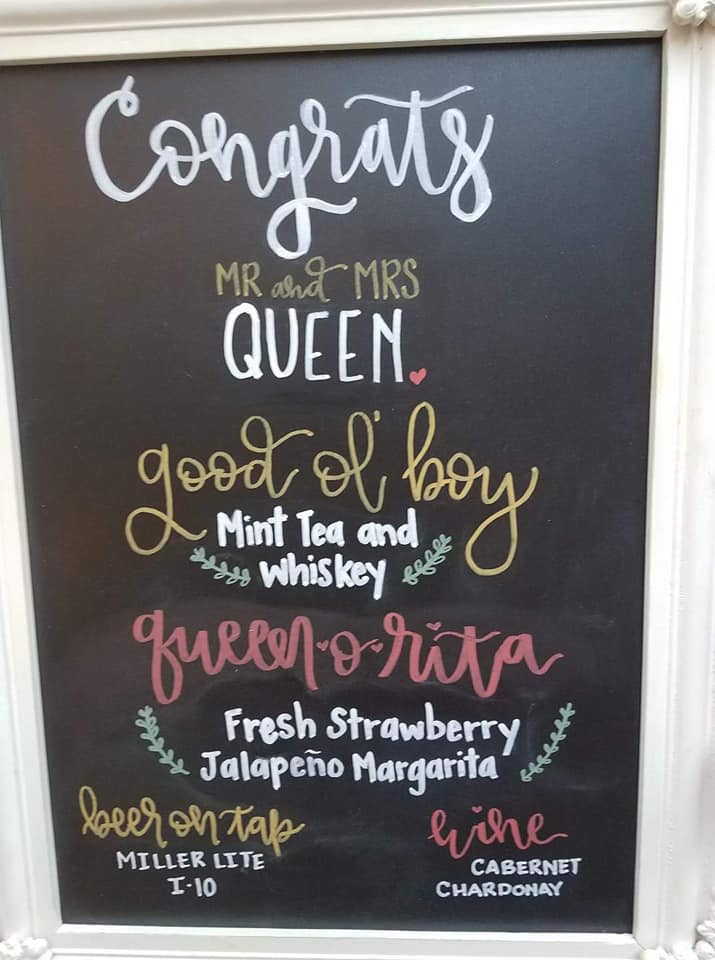 Congrats
MR and MRS
QUEEN
good ol' boy
Mint Tea and
whiskey
queen·o·rita
Fresh Strawberry
Jalapeño Margarita
beer on tap
MILLER LITE
I-10
wine
CABERNET
CHARDONAY